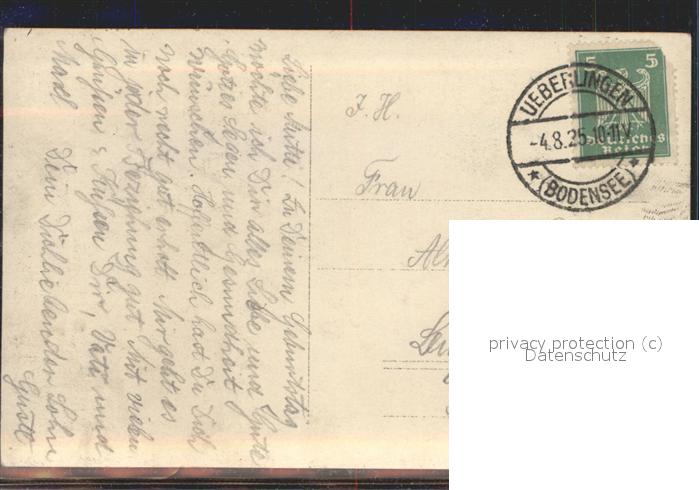 Liebe Mutti! Zu Deinem Geburtstag
möchte ich Dir alles Liebe und Gute
Gottes Segen und Gesundheit
wünschen. Hoffentlich hast Du Dich
noch recht gut erholt. Mir geht es
in jeder Beziehung gut. Mit vielen
Grüßen & Küßen Dir, Vati und
Madl Dein Dichliebender Sohn
Gustl.
I. H.
Frau
5 5
Deutsches
Reich
UEBERLINGEN
-4.8.25.10-11V
(BODENSEE)
privacy protection (c)
Datenschutz